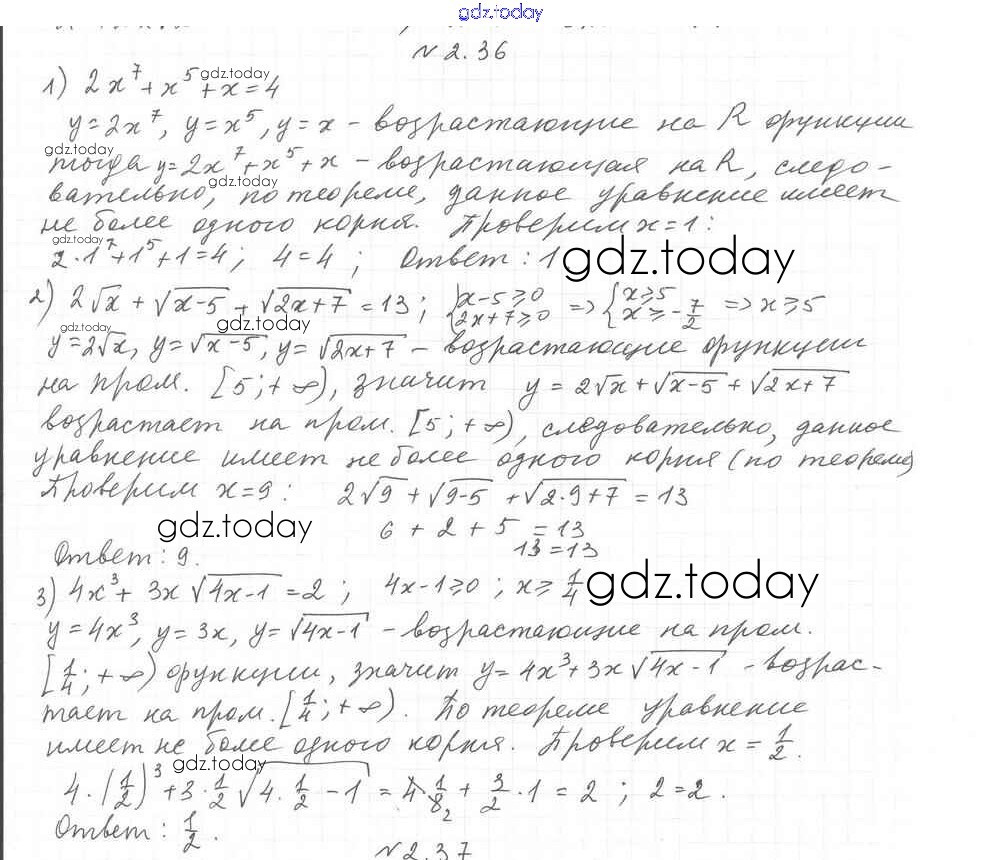 gdz.today
№2.36
1) 2x⁷ + x⁵ + x = 4
gdz.today
y=2x⁷, y=x⁵, y=x - возрастающие на R функции
gdz.today
тогда y=2x⁷+x⁵+x - возрастающая на R, следо-
gdz.today
вательно, по теореме, данное уравнение имеет
не более одного корня. Проверим x=1:
gdz.today
2·1⁷+1⁵+1=4; 4=4; Ответ: 1
gdz.today
2) 2√x + √(x-5) + √(2x+7) = 13; {x-5≥0 2x+7≥0 => {x≥5 x≥-7/2 => x≥5
gdz.today
gdz.today
y=2√x, y=√(x-5), y=√(2x+7) - возрастающие функции
на пром. [5;+∞), значит y = 2√x+√(x-5)+√(2x+7)
возрастает на пром. [5;+∞), следовательно, данное
уравнение имеет не более одного корня (по теореме)
Проверим x=9: 2√9 + √(9-5) + √(2·9+7) = 13
gdz.today
6 + 2 + 5 = 13
13=13
Ответ: 9.
3) 4x³ + 3x√(4x-1) = 2; 4x-1≥0; x≥1/4
gdz.today
y=4x³, y=3x, y=√(4x-1) - возрастающие на пром.
[1/4;+∞) функции, значит y=4x³+3x√(4x-1) - возрас-
тает на пром. [1/4;+∞). По теореме уравнение
имеет не более одного корня. Проверим x=1/2.
gdz.today
4·(1/2)³+3·1/2√(4·1/2-1) = 4·1/8₂ + 3/2·1 = 2; 2=2.
Ответ: 1/2.
№2.37